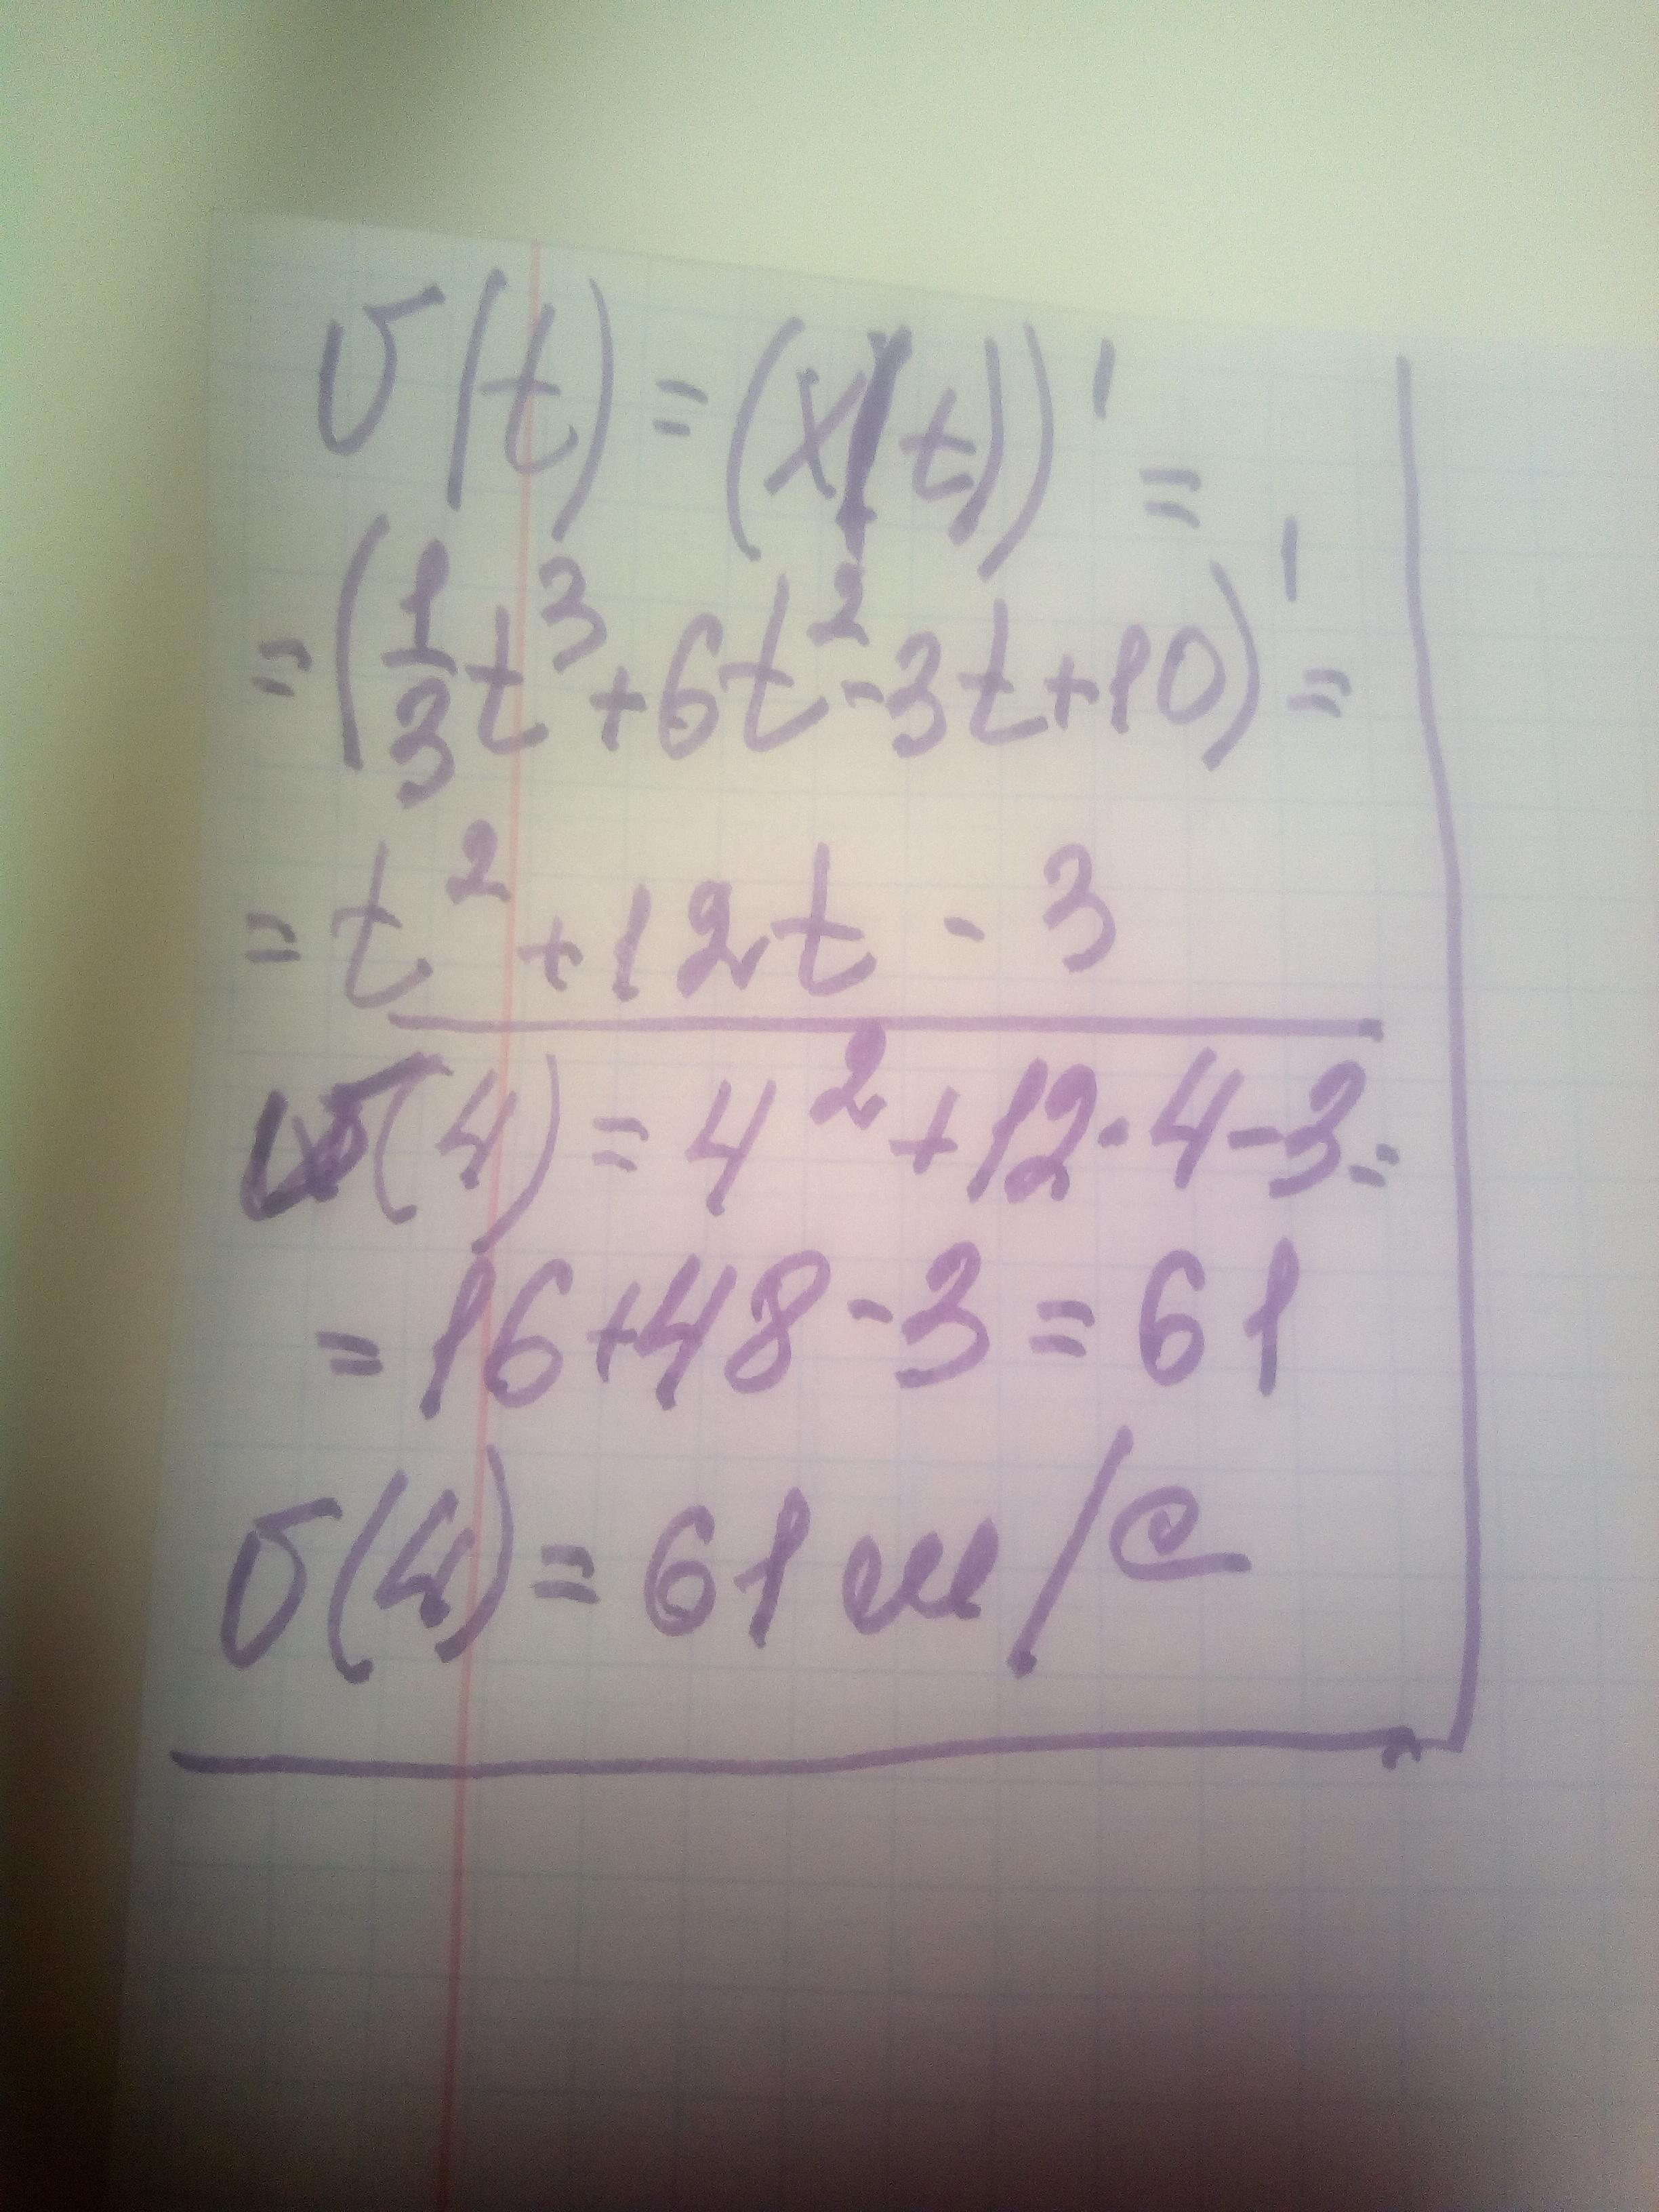 v(t) = (x(t))' =
= (1/3 t³ + 6t² - 3t + 10)' =
= t² + 12t - 3
v(4) = 4² + 12 · 4 - 3 =
= 16 + 48 - 3 = 61
v(4) = 61 м/с